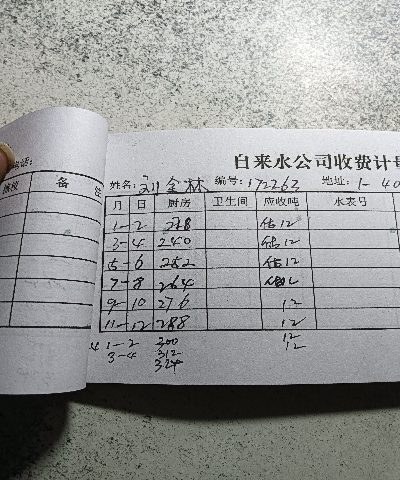 话:
验收 备 注
自来水公司收费计量
姓名: 刘金林 编号: 172263 地址: 1-40
月 日 厨房 卫生间 应收吨 水表号
1-2 228 估12
3-4 240 估12
5-6 252 估12
7-8 264
9-10 276 12
11-12 288 12
4 1-2 300 12
3-4 312 12
324